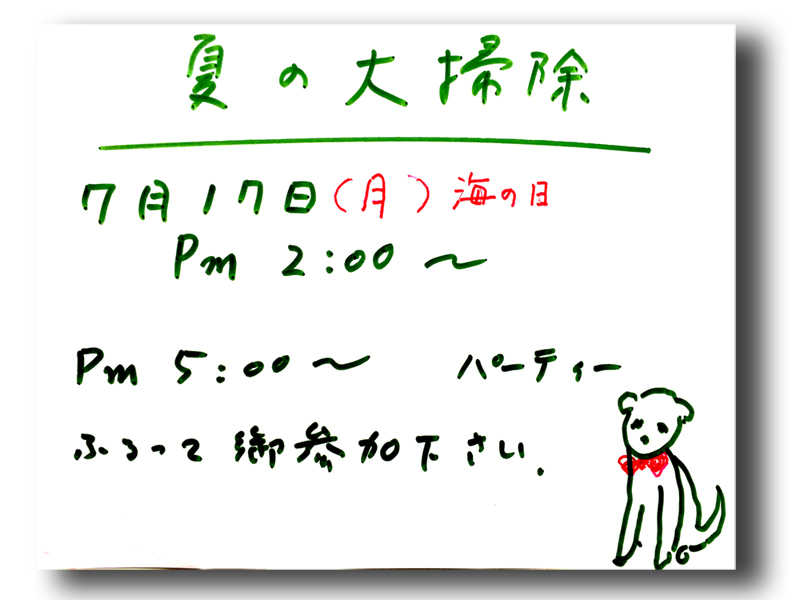 夏の大掃除
7月17日(月)海の日
Pm 2:00〜
Pm 5:00〜 パーティー
ふるって御参加下さい.